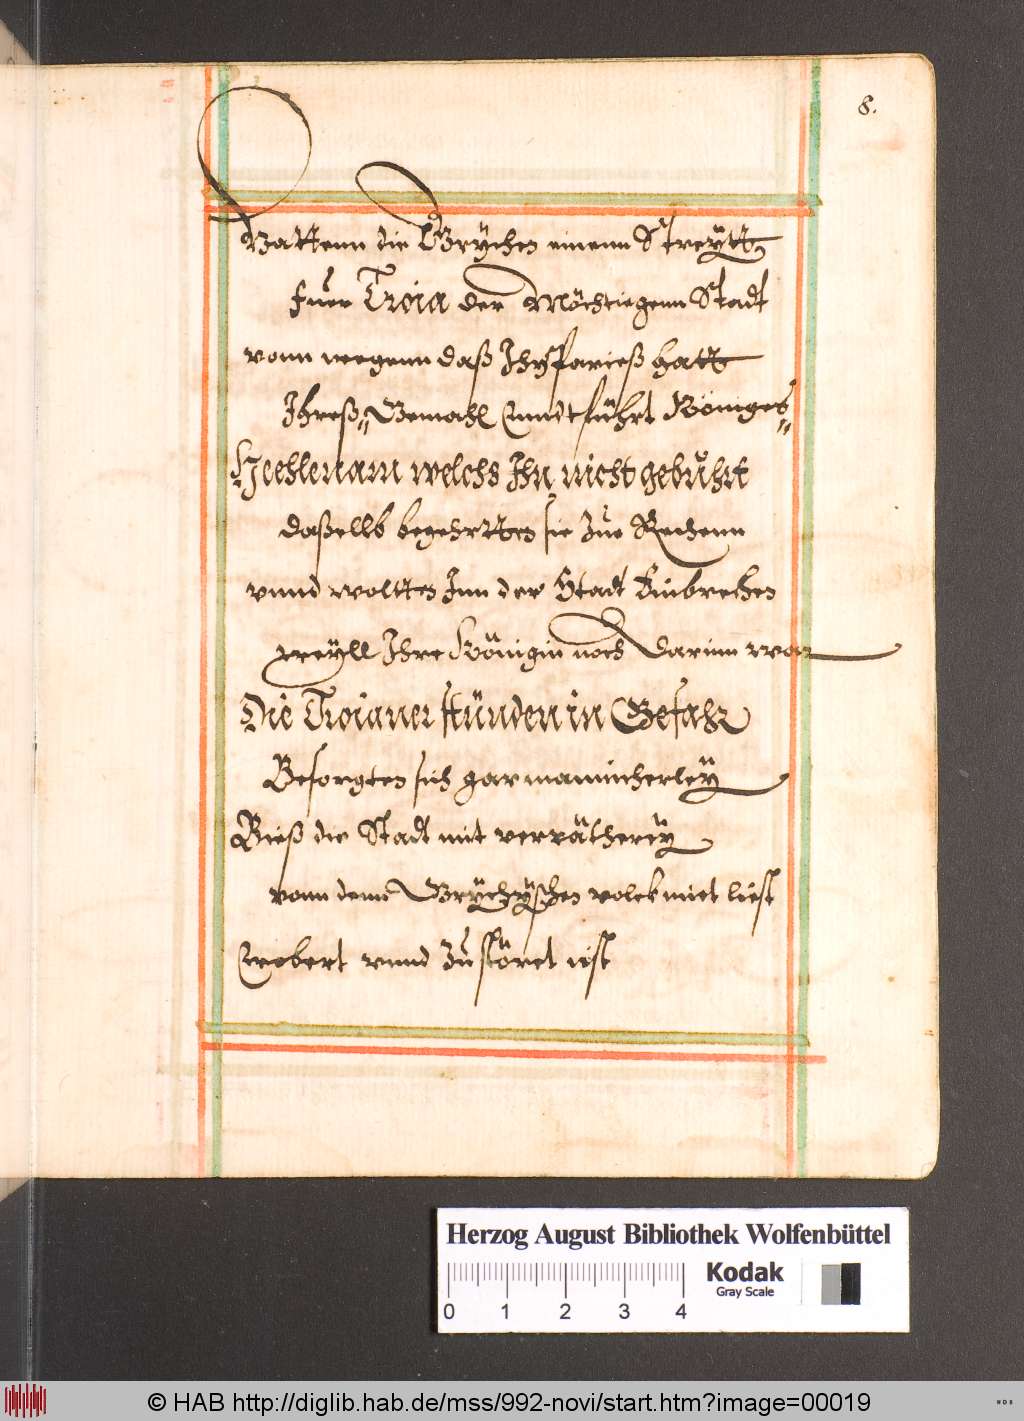 8.
Hattenn die Grÿchen einenn Streÿtt
Fuer Troia der Mächtiegenn Stadt
vonn wegenn daß Ihr Parieß hatt
Ihreß Gemahl Enndtführt Königes
Heehlenam welchs Ihn nicht gebührt
daßellb begehrtten sie Zue Rechenn
vnnd woltten Inn der Stadt Einbrechen
weÿll Ihre Königin noch darinn war
Die Troianer stünden in Gefahr
Besorgten sich gar mannicherleÿ
Bieß die Stadt mit verrätherey
vonn denn Grÿchÿschen volck miet liest
Erobert vnnd Zustöret ist
Herzog August Bibliothek Wolfenbüttel
Kodak
Gray Scale
0 1 2 3 4
© HAB http://diglib.hab.de/mss/992-novi/start.htm?image=00019